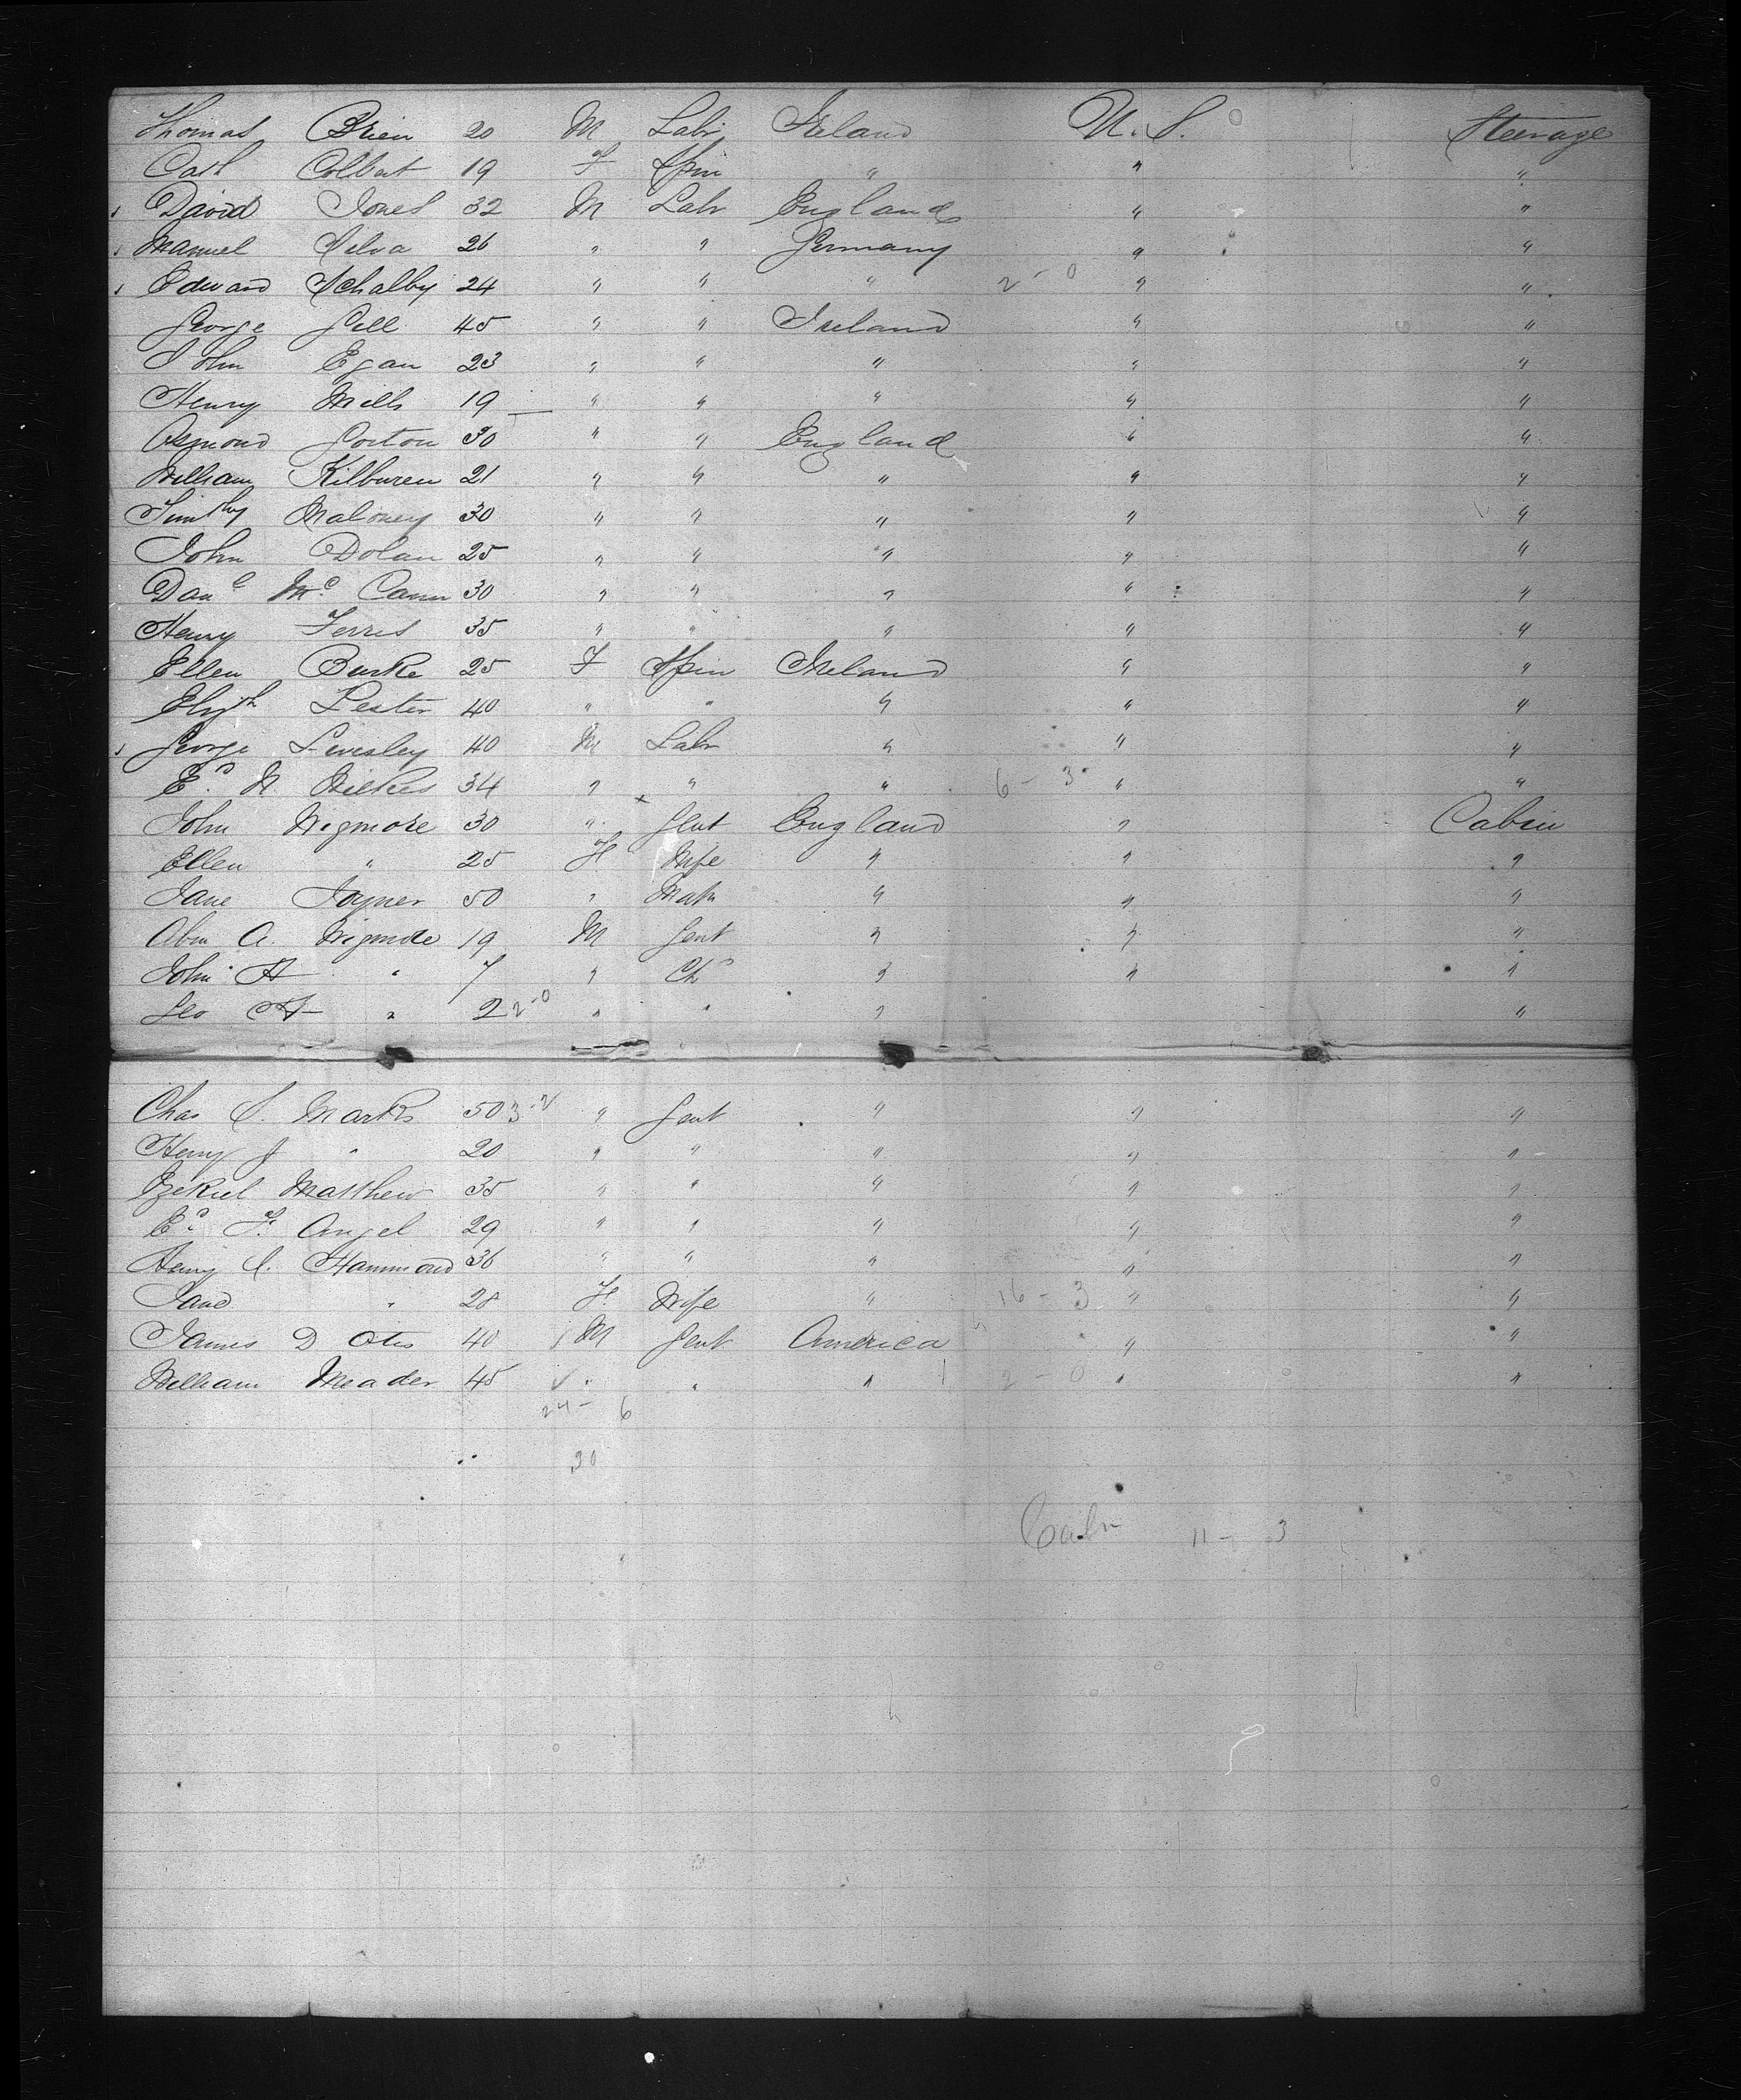 Thomas Brien 20 M Labr Ireland U.S. Steerage
Cath Colbert 19 F Spin " " "
David Jones 32 M Labr England " "
Manuel Selva 26 " " Germany " "
Edward Schalby 24 " " " 2-0 " "
George Gill 45 " " Ireland " "
John Egan 23 " " " " "
Henry Mills 19 " " " " "
Osmond Gorton 30 " " England " "
William Kilburen 21 " " " " "
Timthy Maloney 30 " " " " "
John Dolan 25 " " " " "
Danl McCann 30 " " " " "
Henry Ferris 35 " " " " "
Ellen Burke 25 F Spin Ireland " "
Elizth Lester 40 " " " " "
George Livesley 40 M Labr " " "
Ed. N. Wilkes 34 " " " 6-3 " "
John Wigmore 30 " Gent England " Cabin
Ellen " 25 F Wife " " "
Jane Joyner 50 " Matn " " "
Abm A. Wigmore 19 M Gent " " "
John H " 7 " Chd " " "
Geo H " 2 2-0 " " " "
Chas S. Marks 50 3-2 " Gent " " "
Henry J " 20 " " " " "
Ezekiel Matthew 35 " " " " "
Ed. F. Angel 29 " " " " "
Henry S. Hammond 36 " " " " "
Jane " 28 F. Wife " 16-3 " "
James D Otis 40 M Gent America " "
William Meader 45 " " " 2-0 " "
24-6
30
Cabn 11-3